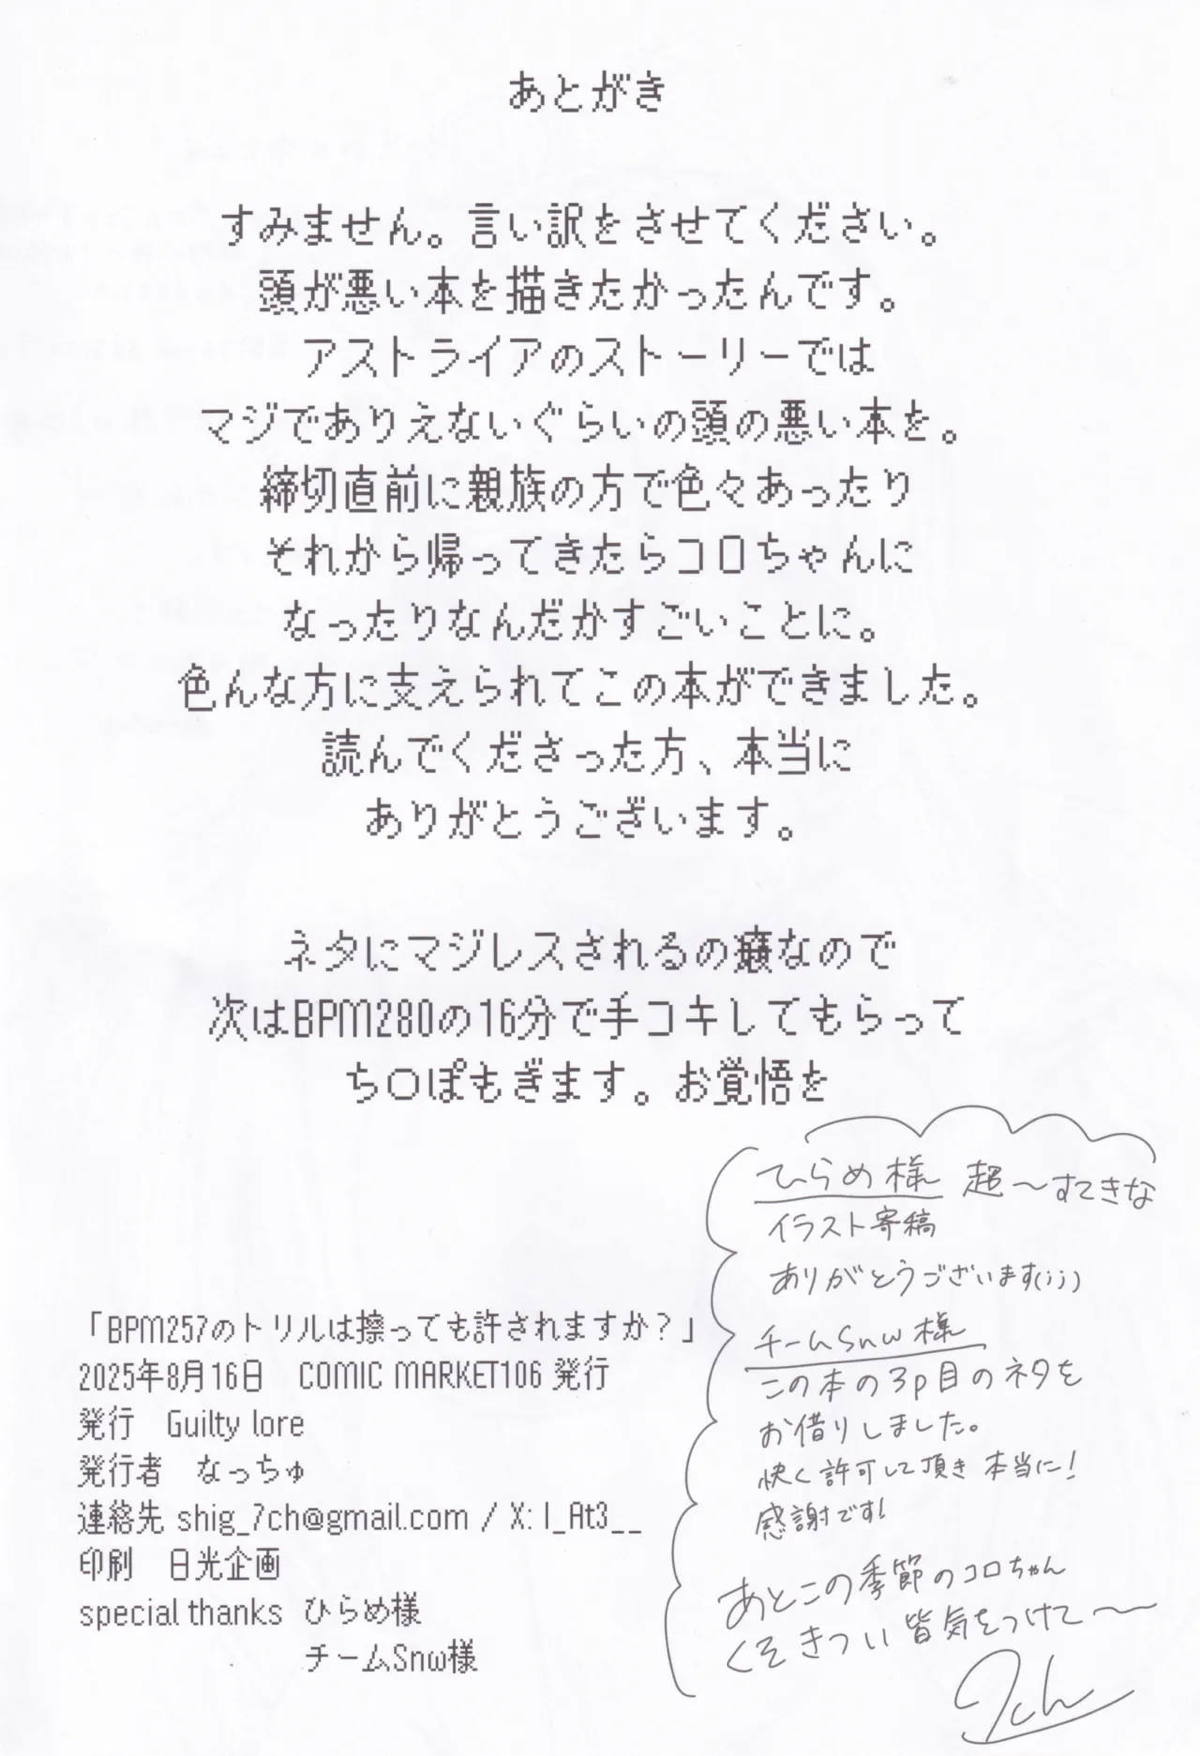 あとがき
すみません。言い訳をさせてください。
頭が悪い本を描きたかったんです。
アストライアのストーリーでは
マジでありえないぐらいの頭の悪い本を。
締切直前に親族の方で色々あったり
それから帰ってきたらコロちゃんに
なったりなんだかすごいことに。
色んな方に支えられてこの本ができました。
読んでくださった方、本当に
ありがとうございます。
ネタにマジレスされるの癪なので
次はBPM280の16分で手コキしてもらって
ち〇ぽもぎます。お覚悟を
ひらめ様 超〜すてきな
イラスト寄稿
ありがとうございます(;;)
チームSnw様
この本の3p目のネタを
お借りしました。
快く許可して頂き本当に!
感謝です!
あとこの季節のコロちゃん
くそきつい皆気をつけて〜
7ch
「BPM257のトリルは擦っても許されますか?」
2025年8月16日 COMIC MARKET106 発行
発行 Guilty lore
発行者 なっちゅ
連絡先 shig_7ch@gmail.com / X: I_At3__
印刷 日光企画
special thanks ひらめ様
チームSnw様